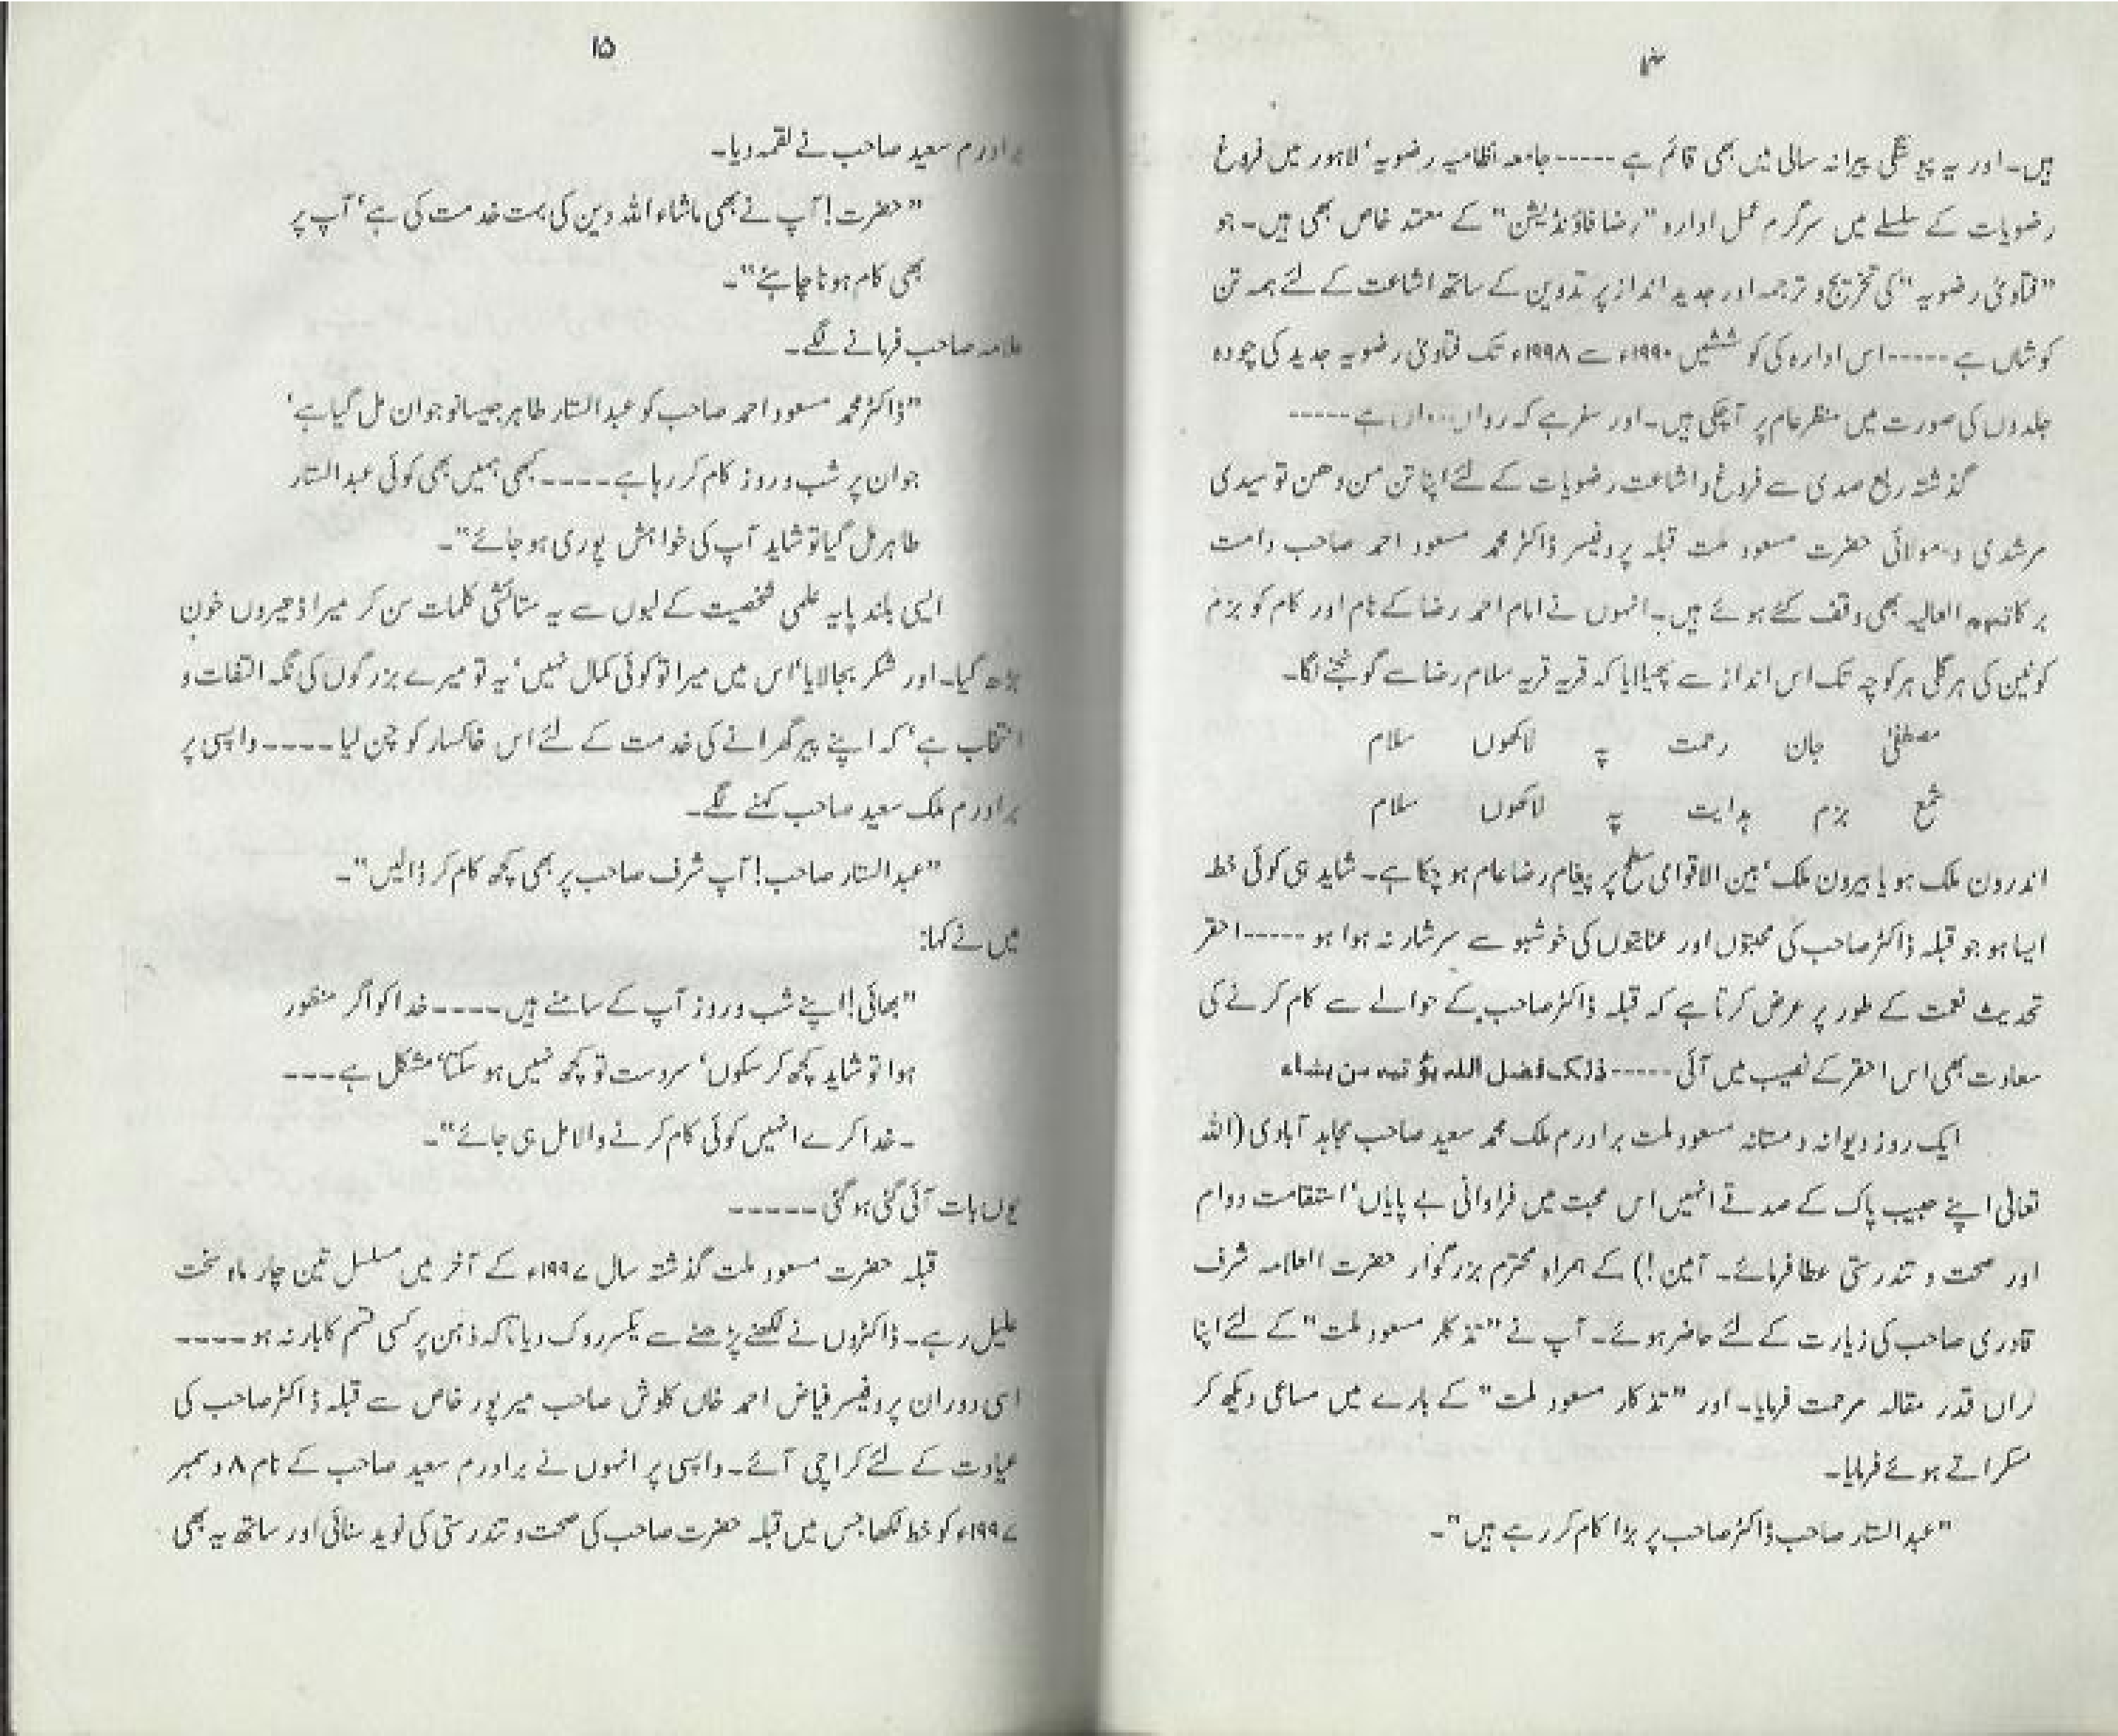 ۱۴
ہیں۔ اور یہ پیوستگی پیرانہ سالی میں بھی قائم ہے ----- جامعہ نظامیہ رضویہ‘ لاہور میں فروغ
رضویات کے سلسلے میں سرگرم عمل ادارہ "رضا فاؤنڈیشن" کے معتمد خاص بھی ہیں۔ جو
"فتاویٰ رضویہ" کی تخریج و ترجمہ اور جدید انداز پر تدوین کے ساتھ اشاعت کے لئے ہمہ تن
کوشاں ہے ----- اس ادارہ کی کوششیں ۱۹۹۰ء سے ۱۹۹۸ء تک فتاویٰ رضویہ جدید کی چودہ
جلدوں کی صورت میں منظر عام پر آچکی ہیں۔ اور سفر ہے کہ رواں دواں ہے -----
گذشتہ ربع صدی سے فروغ و اشاعت رضویات کے لئے اپنا تن من دھن تو سیدی
مرشدی و مولائی حضرت مسعود ملت قبلہ پروفیسر ڈاکٹر محمد مسعود احمد صاحب دامت
برکاتہم العالیہ بھی وقف کئے ہوئے ہیں۔ انہوں نے امام احمد رضا کے نام اور کام کو بزم
کونین کی ہر گلی ہر کوچہ تک اس انداز سے پھیلایا کہ قریہ قریہ سلام رضا سے گونجنے لگا۔
مصطفیٰ جان رحمت پہ لاکھوں سلام
شمع بزم ہدایت پہ لاکھوں سلام
اندرون ملک ہو یا بیرون ملک‘ بین الاقوامی سطح پر پیغام رضا عام ہو چکا ہے۔ شاید ہی کوئی خطہ
ایسا ہو جو قبلہ ڈاکٹر صاحب کی محبتوں اور عنایتوں کی خوشبو سے سرشار نہ ہوا ہو ----- احقر
تحدیث نعمت کے طور پر عرض کرتا ہے کہ قبلہ ڈاکٹر صاحب کے حوالے سے کام کرنے کی
سعادت بھی اس احقر کے نصیب میں آئی ----- ذلک فضل اللہ یؤتیہ من یشاء
ایک روز دیوانہ و مستانہ مسعود ملت برادرم ملک محمد سعید صاحب مجاہد آبادی (اللہ
تعالیٰ اپنے حبیب پاک کے صدقے انہیں اس محبت میں فراوانی بے پایاں‘ استقامت دوام
اور صحت و تندرستی عطا فرمائے۔ آمین!) کے ہمراہ محترم بزرگوار حضرت العلامہ شرف
قادری صاحب کی زیارت کے لئے حاضر ہوئے۔ آپ نے "تذکار مسعود ملت" کے لئے اپنا
گراں قدر مقالہ مرحمت فرمایا۔ اور "تذکار مسعود ملت" کے بارے میں مساعی دیکھ کر
مسکراتے ہوئے فرمایا۔
"عبدالستار صاحب ڈاکٹر صاحب پر بڑا کام کر رہے ہیں"۔
۱۵
برادرم سعید صاحب نے لقمہ دیا۔
"حضرت! آپ نے بھی ماشاء اللہ دین کی بہت خدمت کی ہے‘ آپ پر
بھی کام ہونا چاہئے"۔
علامہ صاحب فرمانے لگے۔
"ڈاکٹر محمد مسعود احمد صاحب کو عبدالستار طاہر جیسا نوجوان مل گیا ہے‘
جو ان پر شب و روز کام کر رہا ہے ---- کبھی ہمیں بھی کوئی عبدالستار
طاہر مل گیا تو شاید آپ کی خواہش پوری ہو جائے"۔
ایسی بلند پایہ علمی شخصیت کے لبوں سے یہ ستائشی کلمات سن کر میرا ڈھیروں خون
بڑھ گیا۔ اور شکر بجا لایا‘ اس میں میرا تو کوئی کمال نہیں‘ یہ تو میرے بزرگوں کی نگہ التفات و
انتخاب ہے‘ کہ اپنے پیر گھرانے کی خدمت کے لئے اس خاکسار کو چن لیا ---- واپسی پر
برادرم ملک سعید صاحب کہنے لگے۔
"عبدالستار صاحب! آپ شرف صاحب پر بھی کچھ کام کر ڈالیں"۔
میں نے کہا:
"بھائی! اپنے شب و روز آپ کے سامنے ہیں ---- خدا کو اگر منظور
ہوا تو شاید کچھ کر سکوں‘ سردست تو کچھ نہیں ہو سکتا‘ مشکل ہے ---
- خدا کرے انہیں کوئی کام کرنے والا مل ہی جائے"۔
یوں بات آئی گئی ہو گئی -----
قبلہ حضرت مسعود ملت گذشتہ سال ۱۹۹۷ء کے آخر میں مسلسل تین چار ماہ سخت
علیل رہے۔ ڈاکٹروں نے لکھنے پڑھنے سے یکسر روک دیا تاکہ ذہن پر کسی قسم کا بار نہ ہو ----
اسی دوران پروفیسر فیاض احمد خاں کاوش صاحب میرپور خاص سے قبلہ ڈاکٹر صاحب کی
عیادت کے لئے کراچی آئے۔ واپسی پر انہوں نے برادرم سعید صاحب کے نام ۸ دسمبر
۱۹۹۷ء کو خط لکھا جس میں قبلہ حضرت صاحب کی صحت و تندرستی کی نوید سنائی اور ساتھ یہ بھی